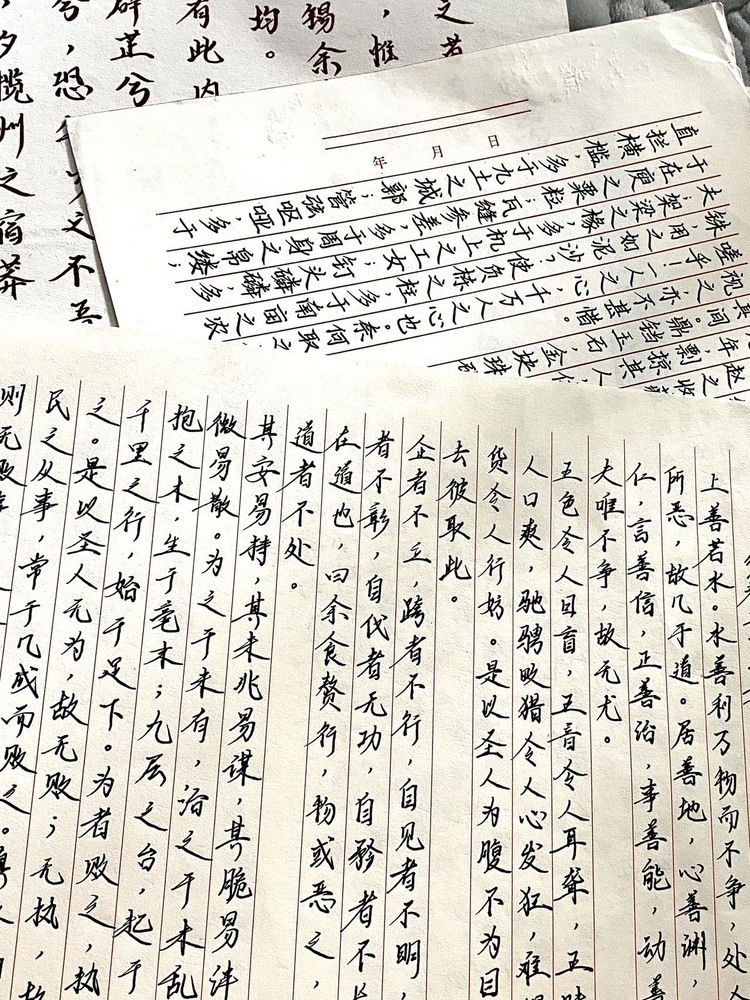 上善若水。水善利万物而不争，处
所恶，故几于道。居善地，心善渊，
仁，言善信，正善治，事善能，动善
夫唯不争，故无尤。
五色令人目盲，五音令人耳聋，五味
人口爽，驰骋畋猎令人心发狂，难
货令人行妨。是以圣人为腹不为目
去彼取此。
企者不立，跨者不行，自见者不明，
者不彰，自伐者无功，自矜者不长
在道也，曰余食赘行，物或恶之，
道者不处。
其安易持，其未兆易谋，其脆易泮
微易散。为之于未有，治之于未乱
抱之木，生于毫末；九层之台，起于
千里之行，始于足下。为者败之，执
之。是以圣人无为，故无败；无执，故
民之从事，常于几成而败之。
则无败
年 月 日
赵之收
年，剽掠其人，
其间。鼎铛玉石，金块珠
视之，亦不甚惜。
嗟乎！一人之心，千万人之心也。秦
铢，用之如泥沙？使负栋之柱，多于南亩之农
大；架梁之椽，多于机上之工女；钉头磷磷，多
于在庾之粟粒；瓦缝参差，多于周身之帛缕；
直栏横槛，多于九土之城郭；管弦呕哑，多于
之若
，惟
锡余
均。
有此内
辟芷兮
兮，恐
不吾
夕揽洲之宿莽